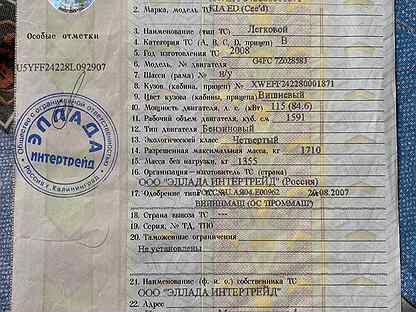 2. Марка, модель ТС KIA ED (Cee'd)
Особые отметки
3. Наименование (тип ТС) Легковой
4. Категория ТС (A, B, C, D, прицеп) B
5. Год изготовления ТС 2008
6. Модель, № двигателя G4FC 7Z028583
U5YFF24228L092907
7. Шасси (рама) № н/у
8. Кузов (кабина, прицеп) № XWEFF242280001871
9. Цвет кузова (кабины, прицепа) Вишневый
10. Мощность двигателя, л. с. (кВт) 115 (84.6)
11. Рабочий объем двигателя, куб. см 1591
12. Тип двигателя Бензиновый
13. Экологический класс Четвертый
14. Разрешенная максимальная масса, кг 1710
15. Масса без нагрузки, кг 1355
16. Организация-изготовитель ТС (страна)
ООО "ЭЛЛАДА ИНТЕРТРЕЙД" (Россия)
17. Одобрение типа ТС № РОСС RU.АЯ04.Е00962 20.08.2007
ВНИИНМАШ (ОС "ПРОММАШ")
18. Страна вывоза ТС ---
19. Серия, № ТД, ТПО
20. Таможенные ограничения
Не установлены
21. Наименование (ф. и. о.) собственника ТС
ООО "ЭЛЛАДА ИНТЕРТРЕЙД"
22. Адрес
Общество с ограниченной ответственностью
ЭЛЛАДА
ИНТЕРТРЕЙД
Россия г. Калининград